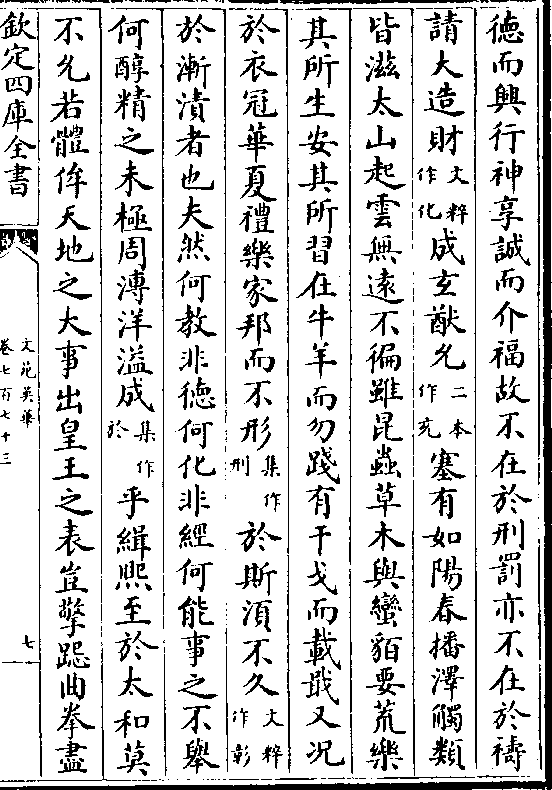 德而興行神享誠而介福故不在於刑罰亦不在於禱
請大造財文粹作化成玄猷允二本作充塞有如陽春播澤觸類
皆滋太山起雲無遠不徧雖昆蟲草木與蠻貊要荒樂
其所生安其所習在牛羊而勿踐有干戈而載戢又況
於衣冠華夏禮樂家邦而不形集作刑於斯湏不久文粹作彰
於漸漬者也夫然何教非德何化非經何能事之不舉
何醇精之未極周溥洋溢成集作於乎緝熈至於太和莫
不允若體侔天地之大事出皇王之表豈擎跽曲拳盡
欽定四庫全書
文苑英華
卷七百七十三
七